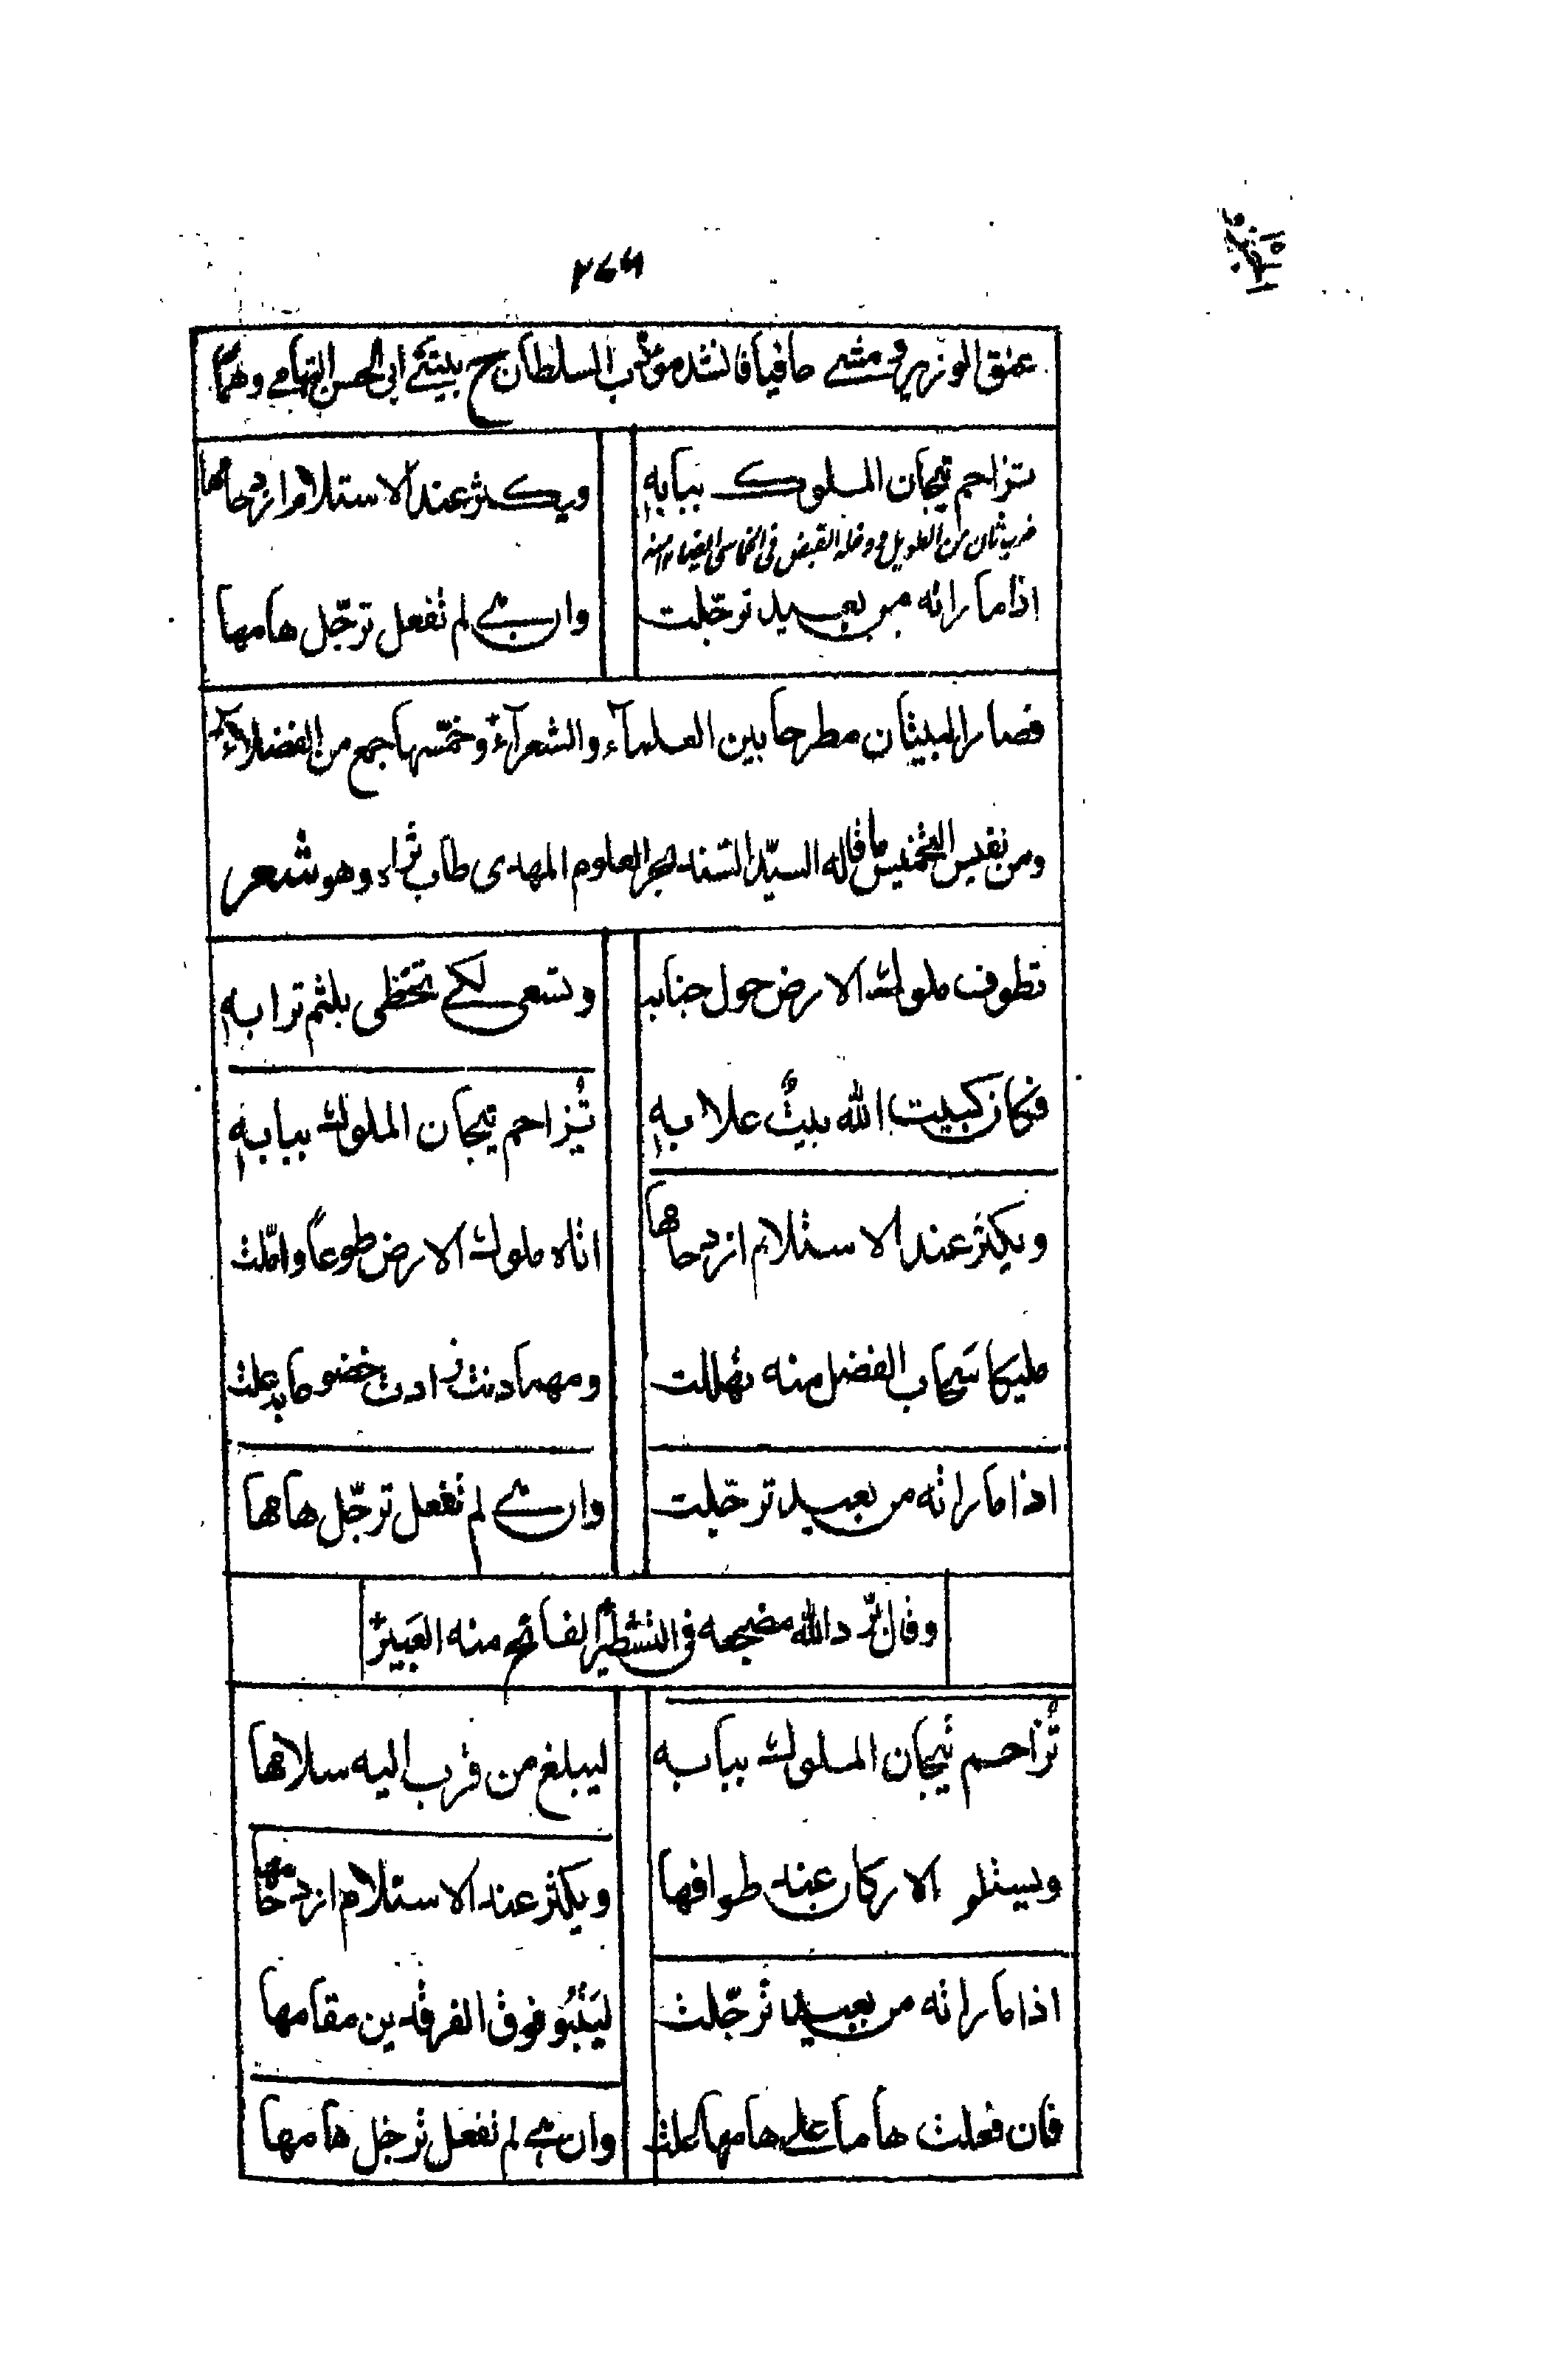 ٢٧٦
عنق الوزير ومشى حافيا فانشد مؤدب السلطان ح بيتي ابى الحسن التهامى وهما
تزاحم تيجان الملوك ببابه ويكثر عند الاستلام ازدحامها
ضرب ثان من الطويل ودخله القبض فى الخماسى ايضا ١٢ منه
اذا ما راته من بعيد ترجّلت وان هى لم تفعل ترجّل هامها
فصار البيتان مطرحا بين العلمآء والشعرآء وخمّسها جمع من الفضلاء
ومن نفيس التخميس ما قاله السيّد السند بحر العلوم المهدى طاب ثراه وهو شعر
تطوف ملوك الارض حول جنابه وتسعى لكى تحظى بلثم ترابه
فكان كبيت الله بيتٌ علا به تُزاحم تيجان الملوك ببابه
ويكثر عند الاستلام ازدحامها اتاه ملوك الارض طوعاً وامّلت
مليكا سَحاب الفضل منه تهللت ومهما دنت زادت خضوعا به علت
اذا ما راته من بعيد ترجّلت وان هى لم تفعل ترجّل هامها
وقال برّد الله مضجعه فى التشطير الفاتح منه العَبير
تُزاحم تيجان الملوك ببابه ليبلغ من قرب اليه سلامها
ويستلم الاركان عند طوافها ويكثر عند الاستلام ازدحامها
اذا ما راته من بعيد ترجّلت ليَثبُو فوق الفرقدين مقامها
فان فعلت هاما على هامها علت وان هى لم تفعل ترجل هامها